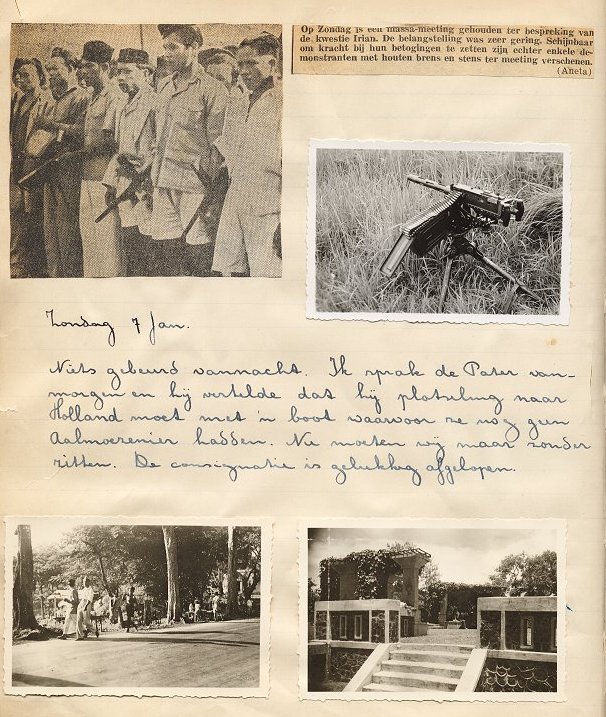 Op Zondag is een massa-meeting gehouden ter bespreking van
de kwestie Irian. De belangstelling was zeer gering. Schijnbaar
om kracht bij hun betogingen te zetten zijn echter enkele de-
monstranten met houten brens en stens ter meeting verschenen.
(Aneta)
Zondag 7 Jan.
Niets gebeurd vannacht. Ik sprak de Pater van-
morgen en hij vertelde dat hij plotseling naar
Holland moet met 'n boot waarvoor ze nog geen
Aalmoezenier hadden. Nu moeten wij maar zonder
zitten. De consignatie is gelukkig afgelopen.